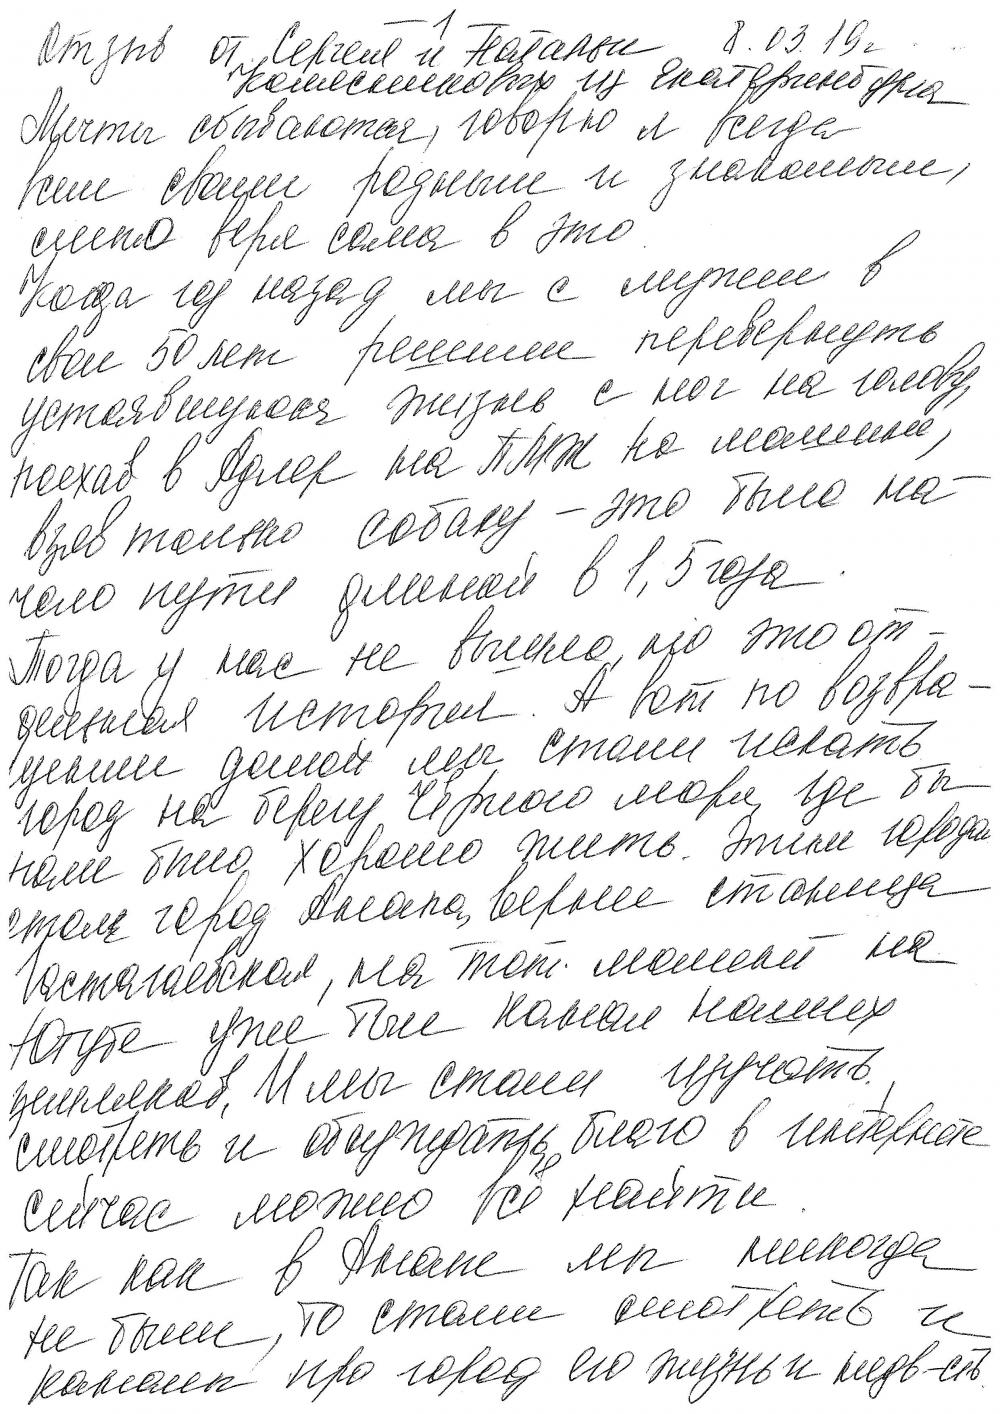 - 1
Отзыв от Сергея и Натальи 8.03.19г.
Колесниковых из Екатеринбурга
Мечты сбываются, говорю я всегда
всем своим родным и знакомым,
сильно веря сама в это.
Когда год назад мы с мужем в
свои 50 лет решили перевернуть
устоявшуюся жизнь с ног на голову,
поехав в Адлер на ПМЖ на машине,
взяв только собаку – это было на-
чало пути длиной в 1,5 года.
Тогда у нас не вышло, но это от-
дельная история. А вот по возвра-
щении домой мы стали искать
город на берегу Чёрного моря, где бы
нам было хорошо жить. Этим городом
стал город Анапа, вернее станица
Гастагаевская, на тот момент на
Ютубе уже был канал наших
земляков. И мы стали изучать,
смотреть и обсуждать, благо в интернете
сейчас можно всё найти.
Так как в Анапе мы никогда
не были, то стали смотреть и
каналы про город его жизнь и недв-сть